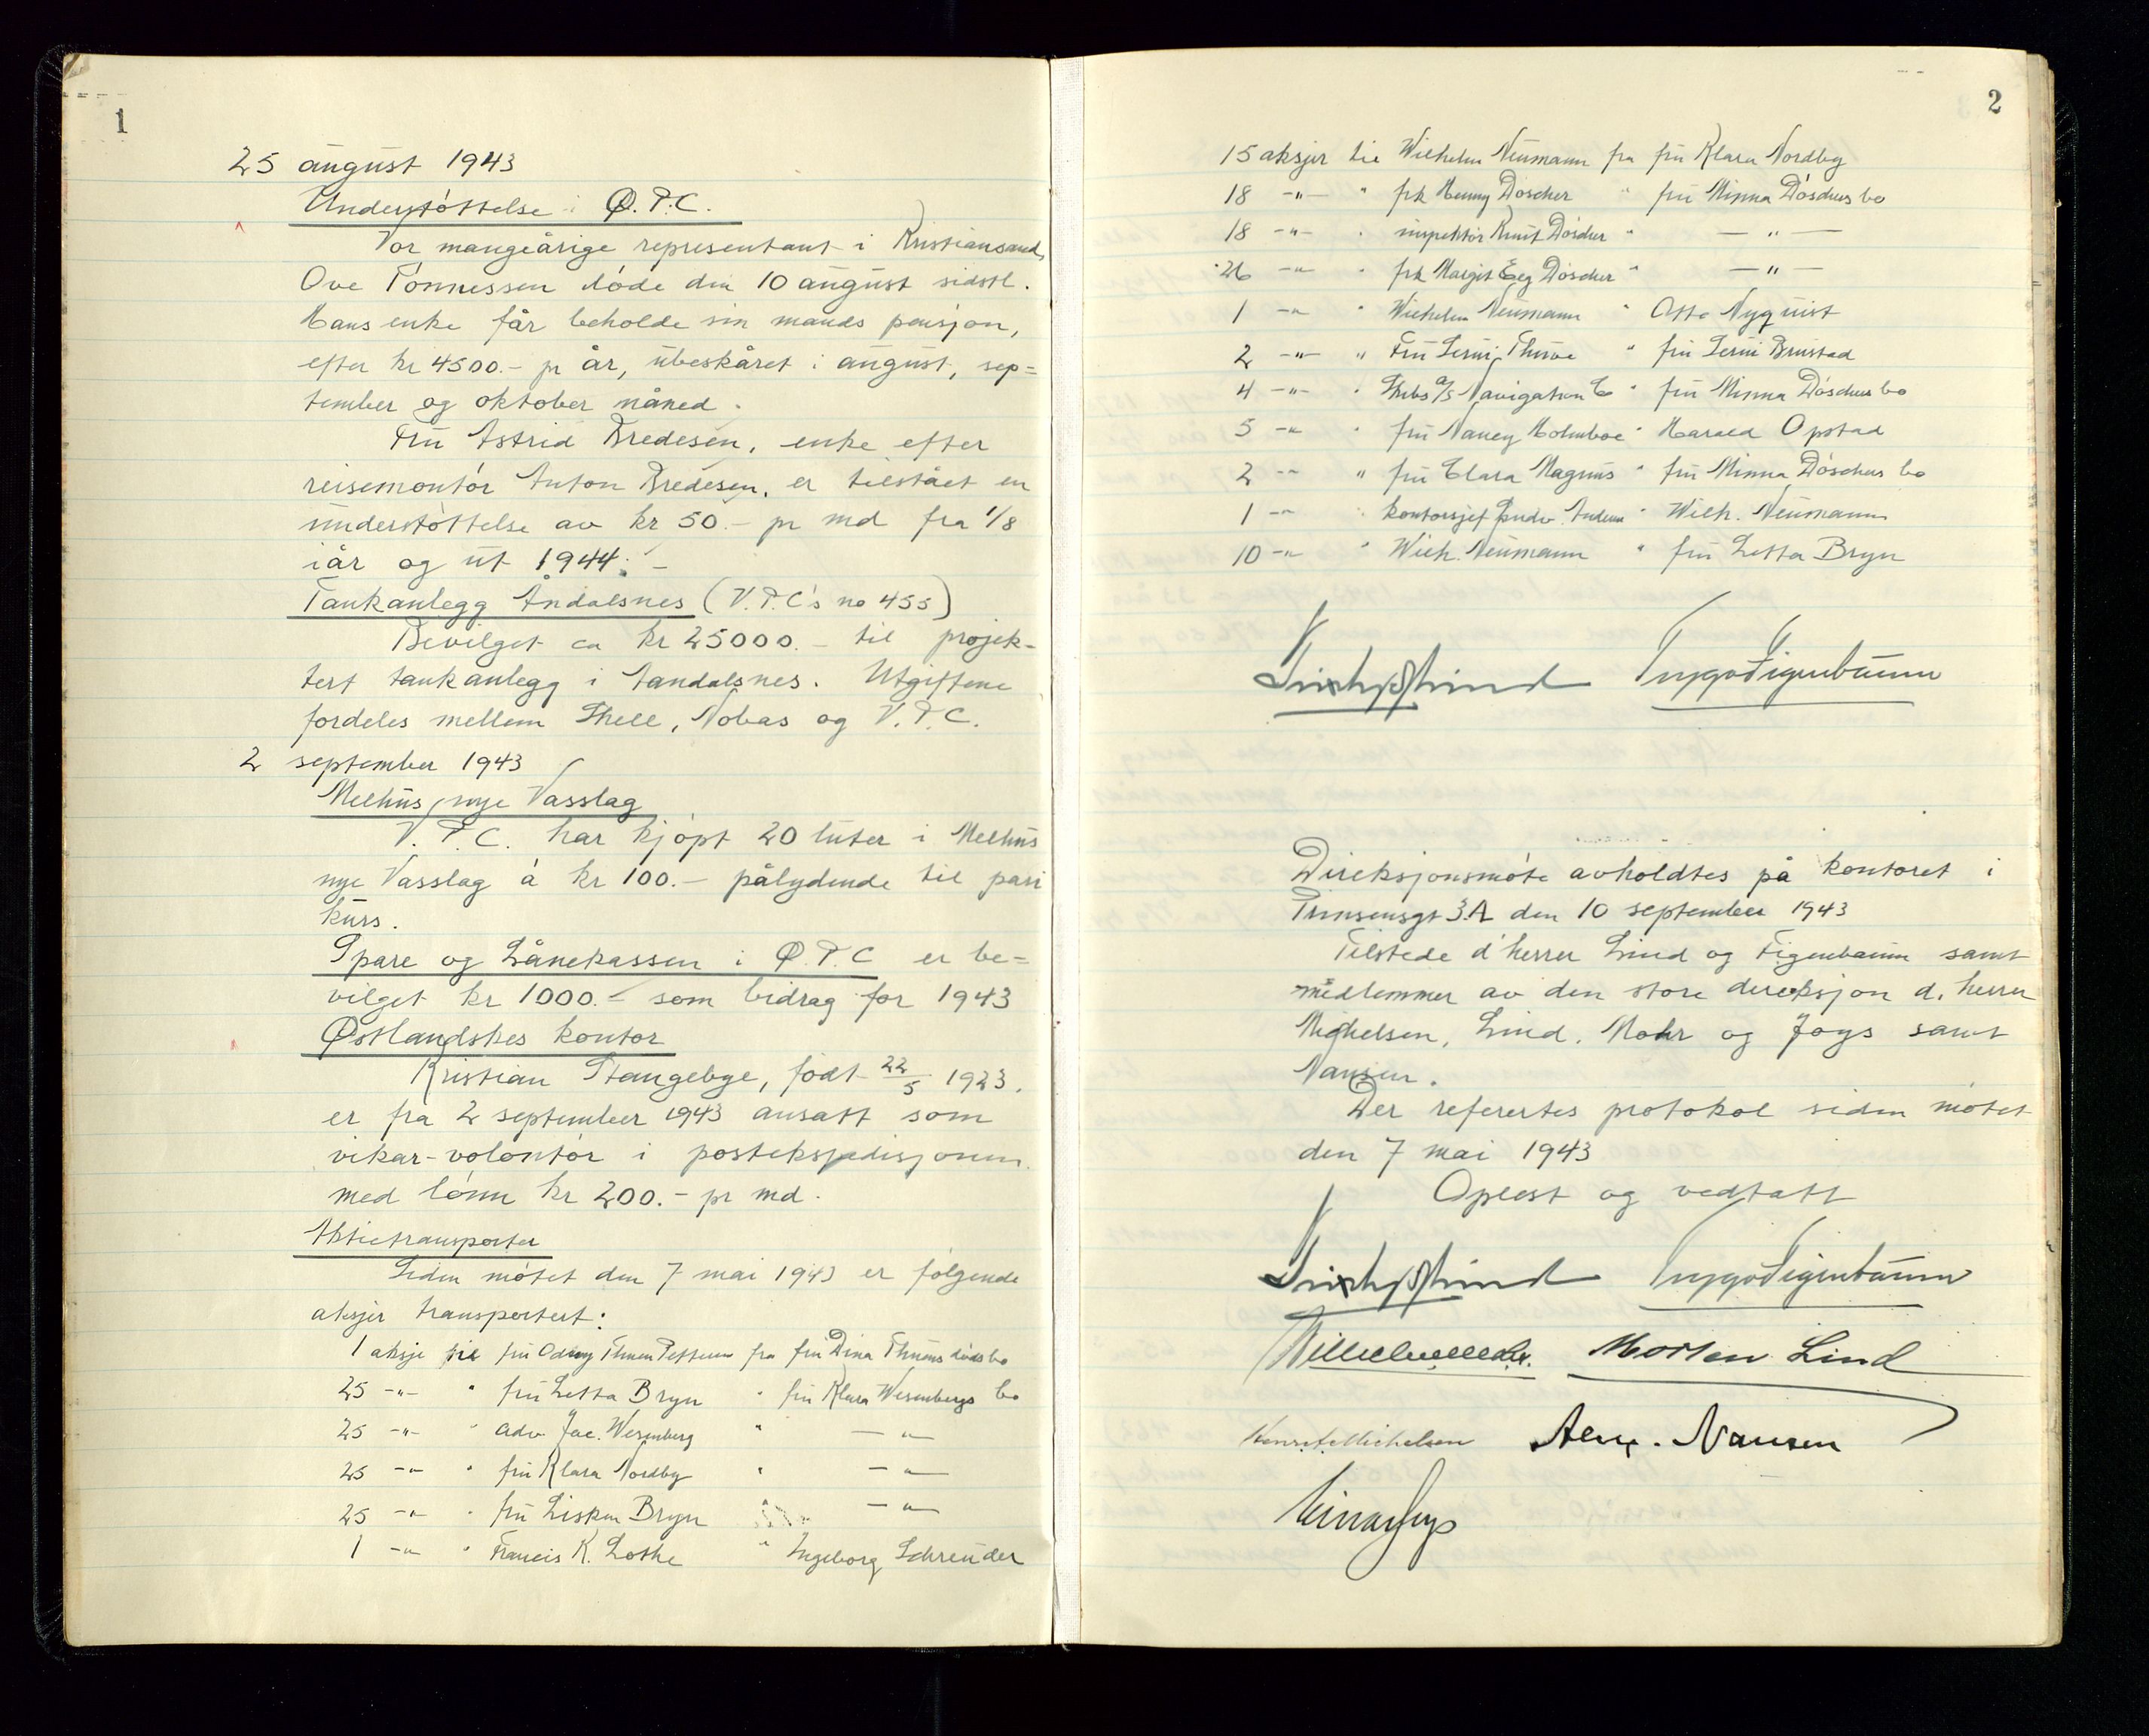 1
25 august 1943
Understøttelse i Ø.P.C.
Vor mangeårige representant i Kristiansand,
Ove Tønnessen døde den 10 august sidstl.
Hans enke får beholde sin mands pensjon,
efter kr 4500.- pr år, ubeskåret i august, sep=
tember og oktober måned.
Fru Astrid Bredesen, enke efter
reisemontør Anton Bredesen, er tilstået en
understøttelse av kr 50.- pr md fra 1/8
iår og ut 1944. -
Tankanlegg Åndalsnes (V.P.C's no 455)
Bevilget ca kr 25000.- til projek-
tert tankanlegg i Aandalsnes. Utgiftene
fordeles mellem Shell, Nobas og V.P.C.
2 september 1943
Melhus nye Vasslag
V.P.C. har kjøpt 20 luter i Melhus
nye Vasslag á kr 100.- pålydende til pari
kurs.
Spare og Lånekassen i Ø.P.C er be-
vilget kr 1000.- som bidrag for 1943
Østlandskes kontor
Kristian Stangebye, født 22/5 1923.
er fra 2 september 1943 ansatt som
vikar-volontør i postekspedisjonen
med lønn kr 200.- pr md.
Aktietransporter
Siden møtet den 7 mai 1943 er følgende
aksjer transportert:
1 aksje til fru Odny Thunen fra fru Dina Thunes dødsbo
25 -"- " fru Letta Bryn " fru Klara Wesenbergs bo
25 -"- " adv Jac. Wesenberg " -"-
25 -"- " fru Klara Nordby " -"-
25 -"- " fru Lisken Bryn " -"-
1 -"- " Francis K. Lothe " Ingeborg Schreuder
2
15 aksjer til Wilhelm Neumann fra fru Klara Nordby
18 -"- " frk Henny Döscher " fru Minna Döschers bo
18 -"- " inspektör Knut Döscher " -"-
26 -"- " frk Margit Eeg Döscher " -"-
1 -"- " Wilhelm Neumann " Otto Nyquist
2 -"- " Fru Thrue " fru Brustad
4 -"- " A/S Navigation Co " fru Minna Döschers bo
5 -"- " fru Nancy Holmboe " Harald Opstad
2 -"- " fru Clara Magnus " fru Minna Döschers bo
1 -"- " kontorsjef " Wilh. Neumann
10 -"- " Wilh. Neumann " fru Letta Bryn
Trygve Figenbaum
Direksjonsmøte avholdtes på kontoret i
Prinsensgt 3A den 10 september 1943
Tilstede d'herrer Lind og Figenbaum samt
medlemmer av den store direksjon d. herrer
Michelsen, Lind, Mohr og Joys samt
Nansen.
Der refertes protokol siden møtet
den 7 mai 1943
Oplest og vedtatt
Trygve Figenbaum
Morten Lind
Michelsen Alex. Nansen
Einar Joys